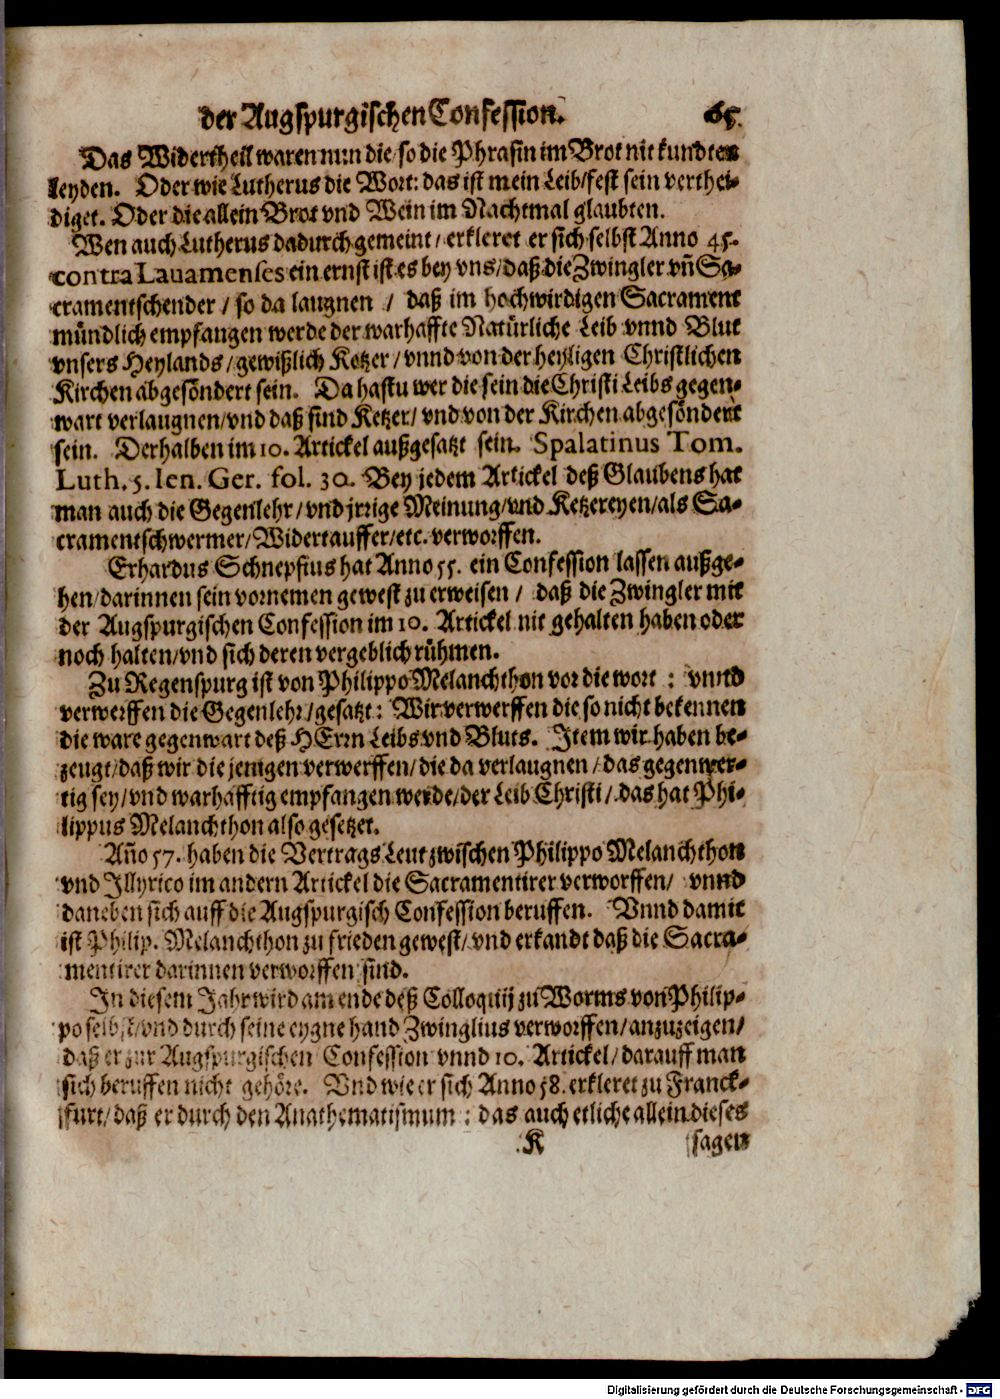 der Augspurgischen Confession. 65.
Das Widertheil waren nun die/ so die Phrasin im Brot nit kundten
leyden. Oder wie Lutherus die Wort: das ist mein Leib/ fest sein verthei-
diget. Oder die allein Brot vnd Wein im Nachtmal glaubten.
Wen auch Lutherus dadurch gemeint/ erkleret er sich selbst Anno 45.
contra Lauamenses ein ernst ist es bey vns/ daß die Zwingler vñ Sa-
cramentschender / so da laugnen / daß im hochwirdigen Sacrament
mündlich empfangen werde der warhaffte Natürliche Leib vnnd Blut
vnsers Heylands/ gewißlich Ketzer/ vnnd von der heyligen Christlichen
Kirchen abgesöndert sein. Da hastu wer die sein die Christi Leibs gegen-
wart verlaugnen/ vnd daß sind Ketzer/ vnd von der Kirchen abgesöndert
sein. Derhalben im 10. Artickel außgesatzt sein. Spalatinus Tom.
Luth. 5. Ien. Ger. fol. 30. Bey jedem Artickel deß Glaubens hat
man auch die Gegenlehr/ vnd jrrige Meinung/ vnd Ketzereyen/ als Sa-
cramentschwermer/ Widertauffer/ etc. verworffen.
Erhardus Schnepfius hat Anno 55. ein Confession lassen außge-
hen/ darinnen sein vornemen gewest zu erweisen / daß die Zwingler mit
der Augspurgischen Confession im 10. Artickel nit gehalten haben oder
noch halten/ vnd sich deren vergeblich rühmen.
Zu Regenspurg ist von Philippo Melanchthon vor die wort : vnnd
verwerffen die Gegenlehr/ gesatzt: Wir verwerffen die so nicht bekennen
die ware gegenwart deß HErrn Leibs vnd Bluts. Item wir haben be-
zeugt/ daß wir die jenigen verwerffen/ die da verlaugnen / das gegenwer-
tig sey/ vnd warhafftig empfangen werde/ der Leib Christi/ das hat Phi-
lippus Melanchthon also gesetzet.
Año 57. haben die Vertrags Leut zwischen Philippo Melanchthon
vnd Illyrico im andern Artickel die Sacramentirer verworffen/ vnnd
daneben sich auff die Augspurgisch Confession beruffen. Vnnd damit
ist Philip. Melanchthon zu frieden gewest/ vnd erkandt daß die Sacra-
mentirer darinnen verworffen sind.
In diesem Jahr wird am ende deß Colloquij zu Worms von Philip-
po selbst/ vnd durch seine eygne hand Zwinglius verworffen/ anzuzeigen/
daß er zur Augspurgischen Confession vnnd 10. Artickel/ darauff man
sich beruffen nicht gehöre. Vnd wie er sich Anno 58. erkleret zu Franck-
furt/ daß er durch den Anathematismum : das auch etliche allein dieses
K sagen
Digitalisierung gefördert durch die Deutsche Forschungsgemeinschaft - DFG